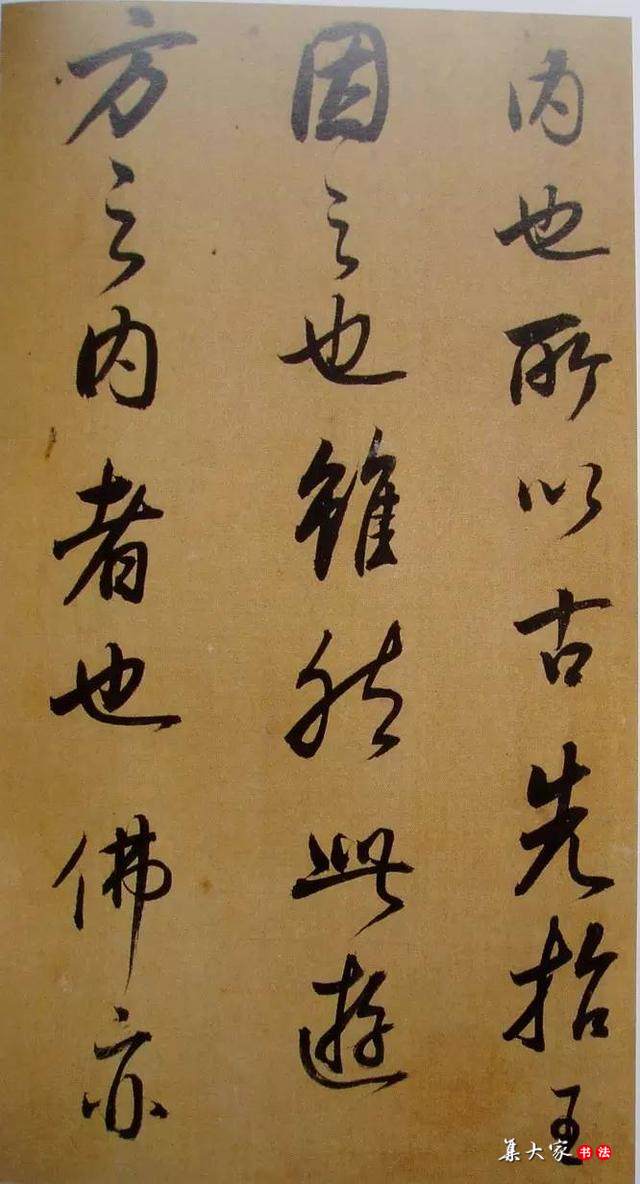 内也所以古先哲王
因之也雖然此遊
方之内者也佛亦
集大家书法